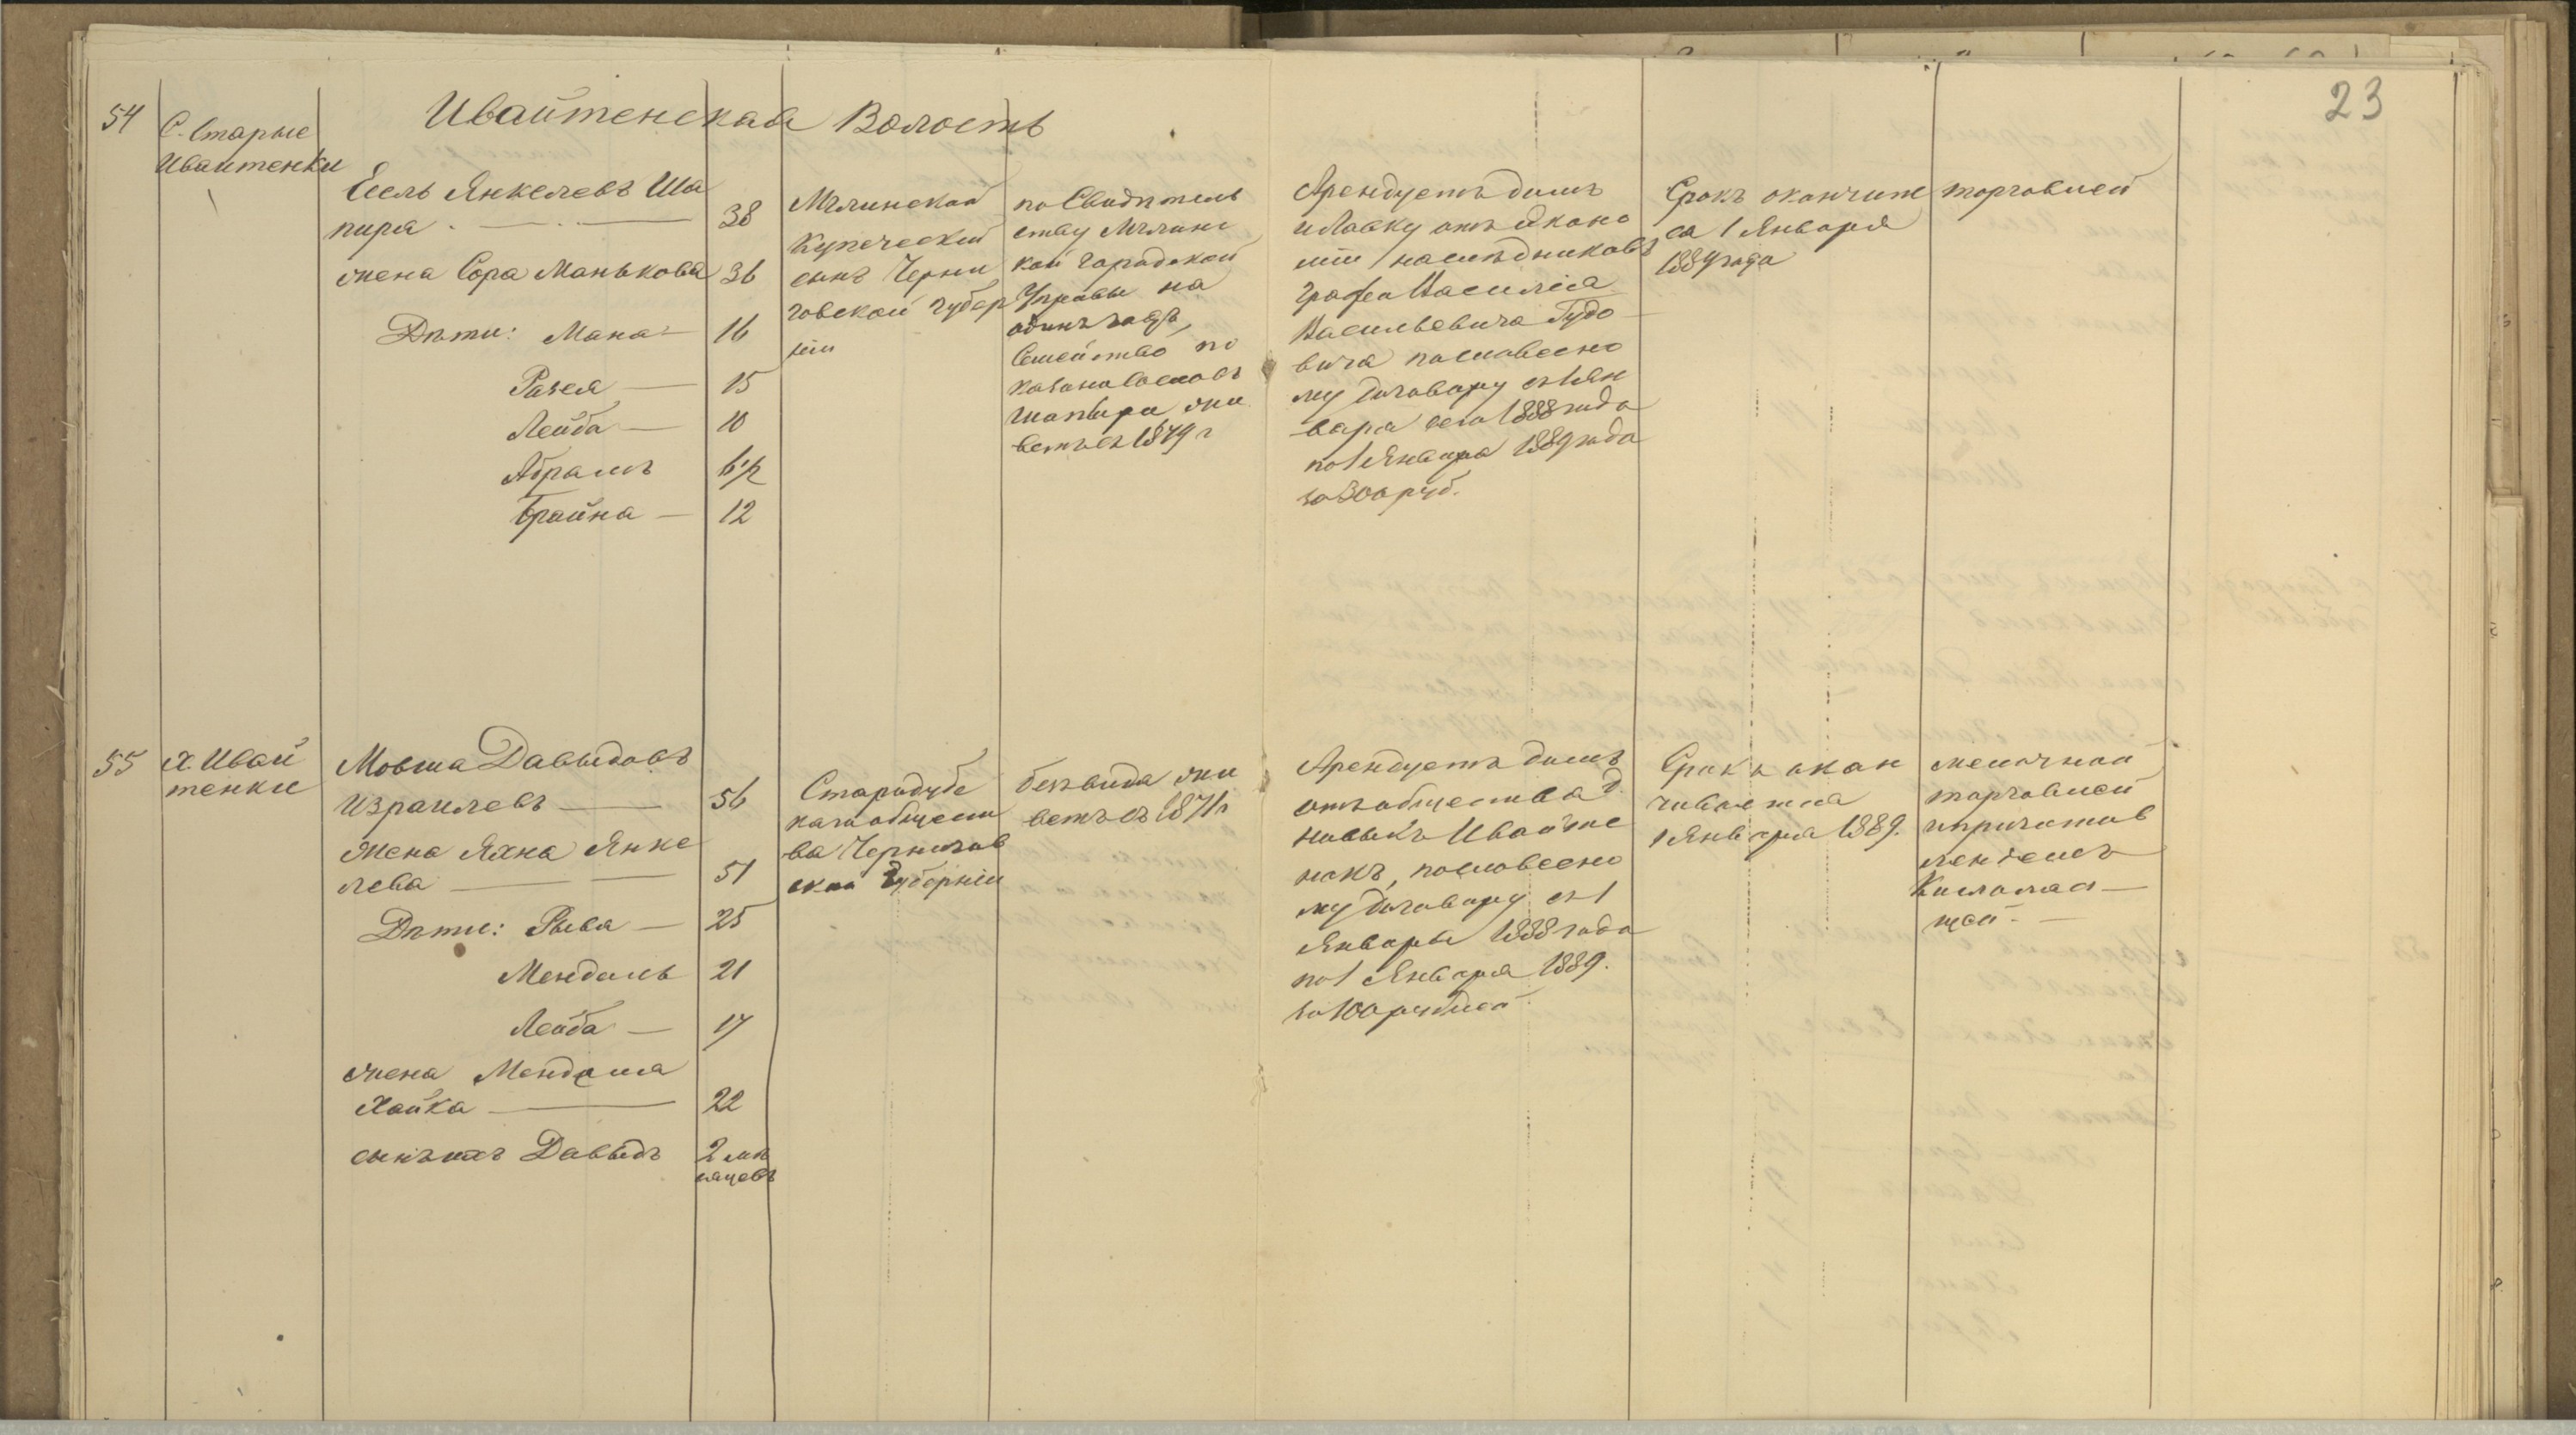 23
Ивайтенская Волость
54
С. Старые
Ивайтенки
Есель Янкелевъ Ша
пира
38
жена Сора Манькова 36
Дѣти: Мана 16
Рахея 15
Лейба 10
Абрамъ 6 1/2
Брайна 12
Мглинской
Купеческій
сынъ Черни
говской губер
ніи
по Свидѣтель
ству Мглинс
кой городской
Управы на
одинъ годъ,
Семейство по
казано
Шапира, жи
ветъ съ 1879 г
Арендуетъ домъ
и Лавку отъ Эконо
міи наслѣдниковъ
Графа Василія
Васильевича Гудо
вича по словесно
му договору съ 1 Ян
варя сего 1888 года
по 1 Января 1889 года
за 300 руб.
Срокъ окончит
са 1 Января
1889 года
торговлей
55
Х. Ивай
тенки
Мовша Давыдовъ
Израилевъ 56
Жена Яхна Янке
лева 51
Дѣти: Рыва 25
Мендель 21
Лейба 17
жена Менделя
Хайка 22
сынъ ихъ Давыдъ 2 мѣ
сяцевъ
Стародубс
каго общест
ва Чернигов
ской Губерніи
безъ вида жи
ветъ съ 1871 г
Арендуетъ домъ
отъ общества д.
Новыхъ Ивайте
нокъ, по словесно
му договору съ 1
Января 1888 года
по 1 Января 1889.
за 100 рублей
Срокъ окан
чивается
1 Января 1889.
мелочной
торговлей
и приготов
леніемъ